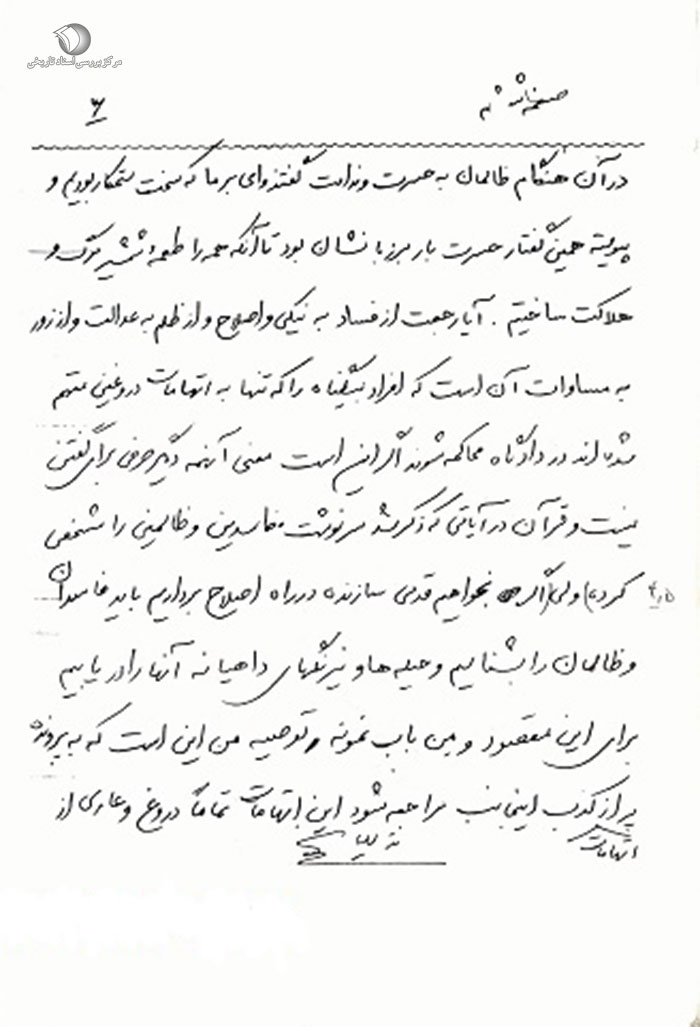 مرکز بررسی اسناد تاریخی
۶
در آن هنگام ظالمان به حسرت و ندامت گفتند وای بر ما که سخت ستمکار بودیم و
پیوسته همین گفتار حسرت بار بر زبانشان بود تا آنکه همه را طعمه شمشیر مرگ و
هلاکت ساختیم . آیا رجعت از فساد به نیکی و اصلاح و از ظلم به عدالت و از زور
به مساوات آن است که افراد بیگناه را که تنها به اتهامات دروغینی متهم
شده اند در دادگاه محاکمه شوند اگر این است معنی آنهمه دیگر حرفی برای گفتن
نیست و قرآن در آیاتی که ذکر شد سرنوشت مفاسدین و ظالمینی را مشخص
کرده) ولی اگر بخواهیم قدمی سازنده در راه اصلاح برداریم باید فاسدان
و ظالمان را بشناسیم و حیله ها و نیرنگهای داهیانه آنها را دریابیم
برای این مقصود و من باب نمونه توصیه من این است که به پرونده
پر از کذب اینجانب مراجعه شود این اتهامات تماماً دروغ و عاری از
اتهامات